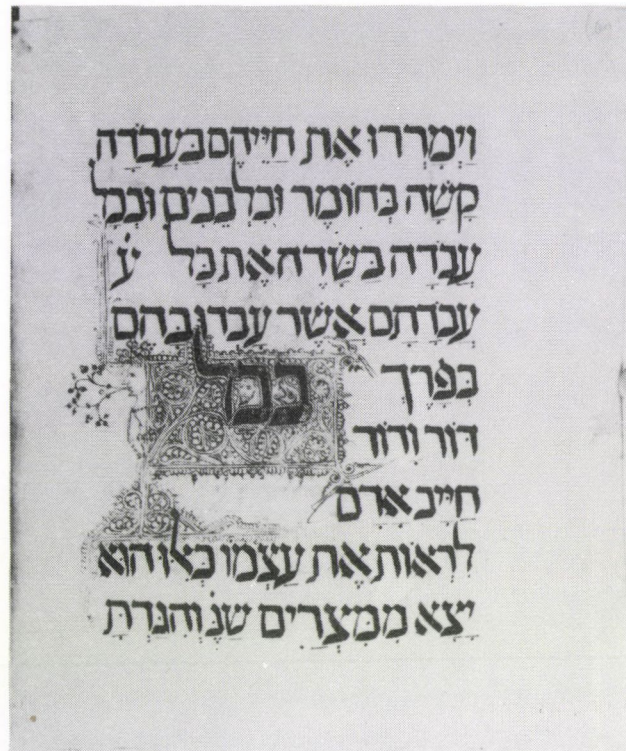 וימררו את חייהם בעבדה
קשה בחומר ובלבנים ובכל
עבדה בשדה את כל ע
עבדתם אשר עבדו בהם
בפרך בכל
דור ודור
חייב אדם
לראות את עצמו כאלו הוא
יצא ממצרים שנ והגדת